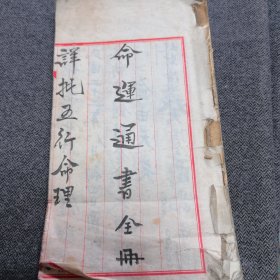 命運通書全冊
詳批五行命理